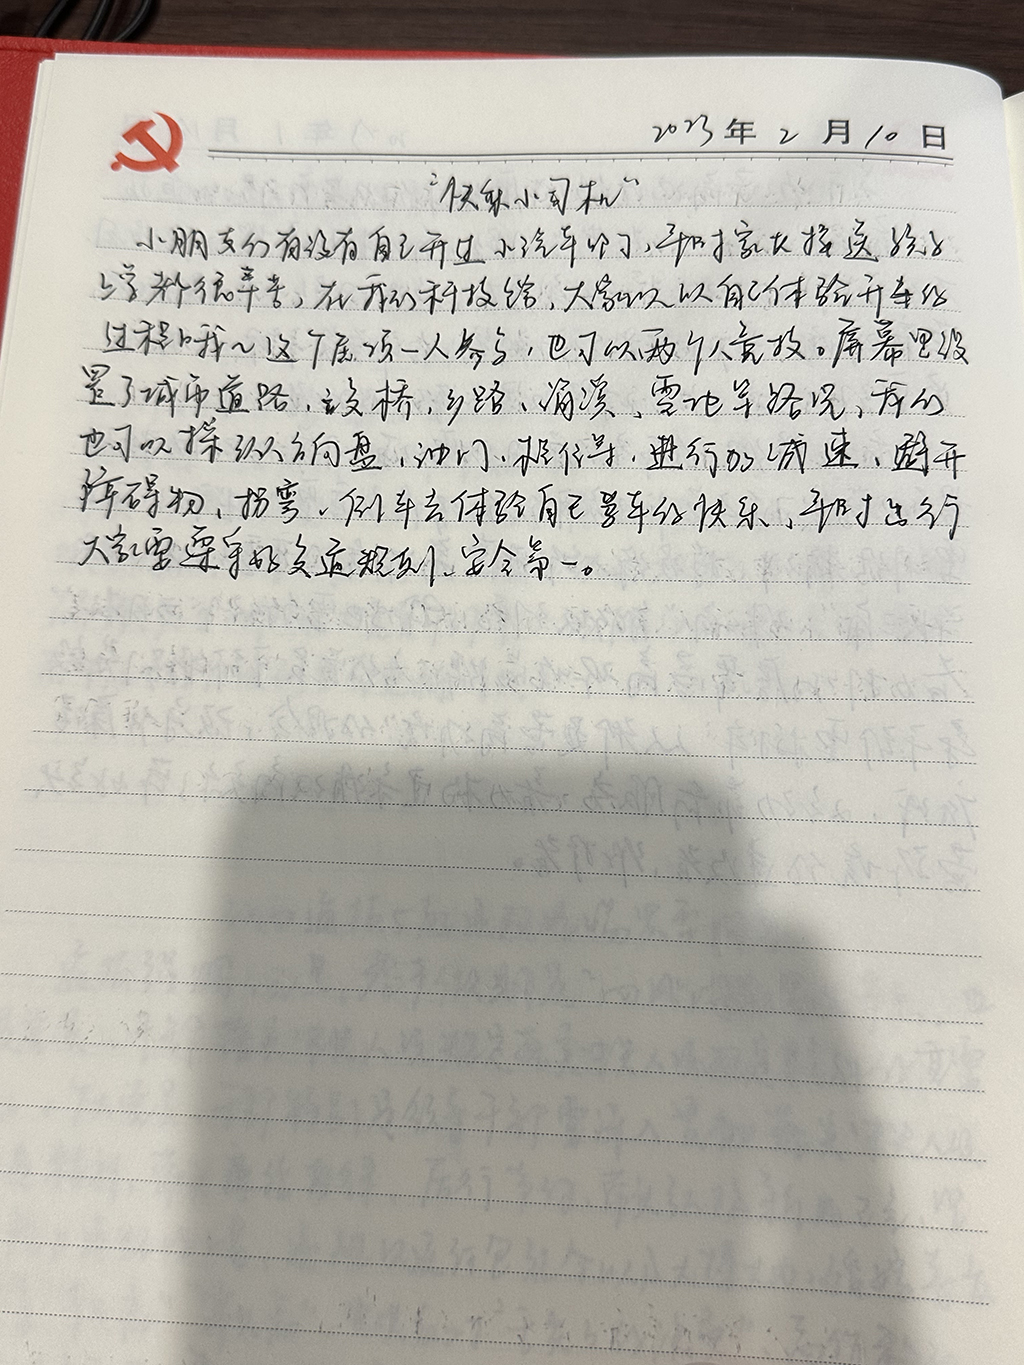 2023年2月10日
“快乐小司机”
小朋友们有没有自己开过小汽车的了、平时家长接送孩子
上学都很辛苦，在我们科技馆，大家可以以自己体验开车的
过程，我们这个展项一人参与，也可以两个人竞技。屏幕里设
置了城市道路、立交桥、乡路、涵溪、雪地等路况，我们
也可以操纵方向盘、油门、档位等，进行加减速、避开
障碍物、拐弯、倒车去体验自己驾车的快乐，平时出行
大家需要牢好交通规则、安全第一。